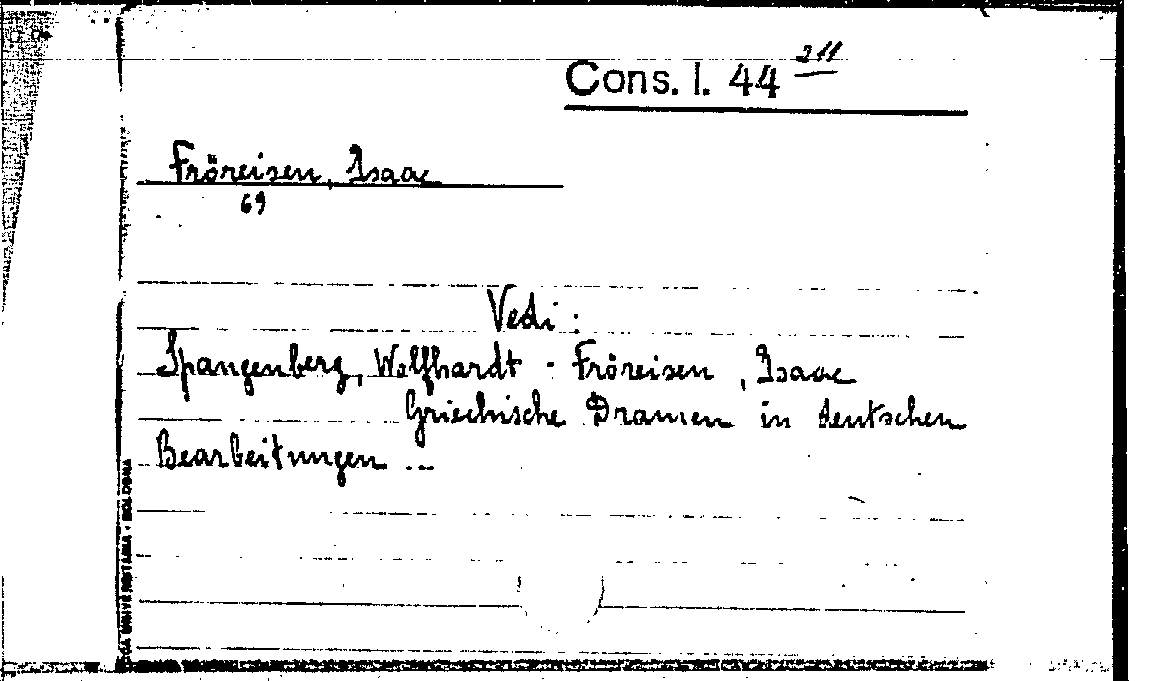 Cons. I. 44 211
Fröreisen, Isaac
69
Vedi:
Spangenberg, Wolfhardt - Fröreisen, Isaac
Griechische Dramen in deutschen
Bearbeitungen ...
UNIVERSITARIA - BOLOGNA